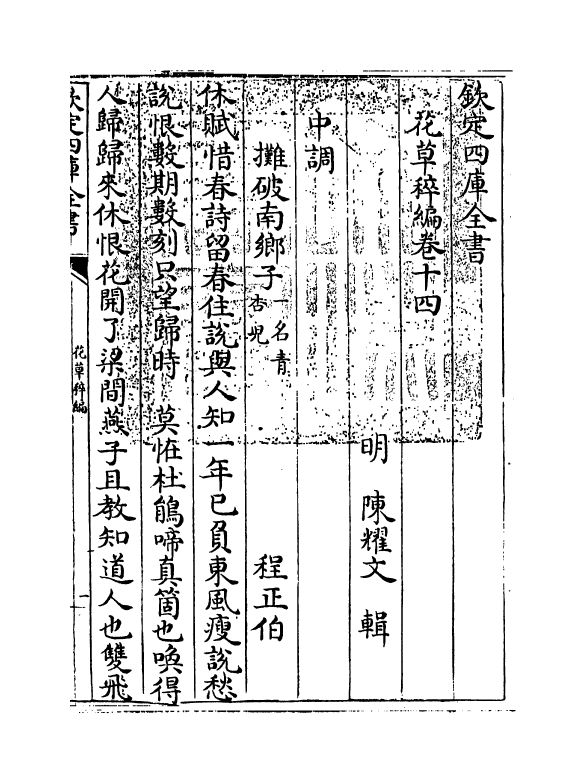 欽定四庫全書
花草稡編卷十四
明 陳耀文 輯
中調
攤破南鄉子一名青杏兒 程正伯
休賦惜春詩留春住説與人知一年已負東風瘦説愁
説恨數期數刻只望歸時 莫恠杜鵑啼真箇也喚得
人歸歸來休恨花開了梁間燕子且教知道人也雙飛
欽定四庫全書
花草稡編
一